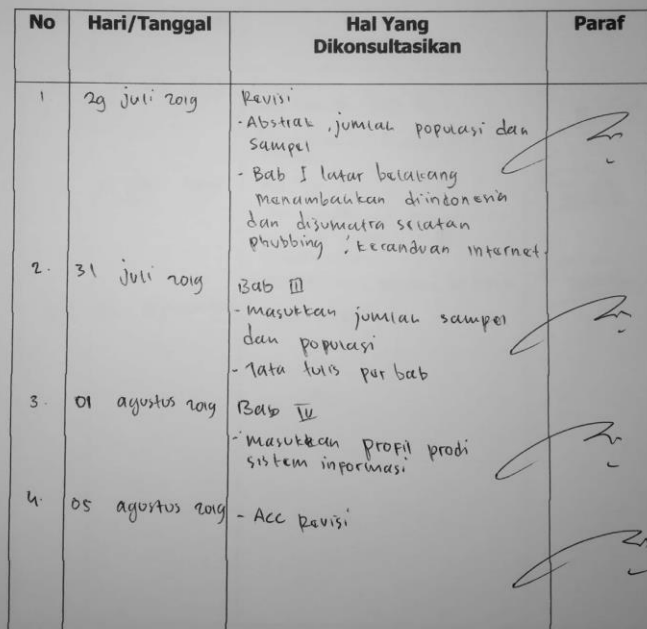 No Hari/Tanggal Hal Yang Dikonsultasikan Paraf
1 29 juli 2019 Revisi
- Abstrak, jumlah populasi dan
sampel
- Bab I latar belakang
menambahkan diindonesia
dan disumatra selatan
phubbing, kecanduan internet.
2. 31 juli 2019 Bab III
- masukkan jumlah sampel
dan populasi
- Tata tulis per bab
3. 01 agustus 2019 Bab IV
- masukkan profil prodi
sistem informasi
4. 05 agustus 2019 - Acc Revisi